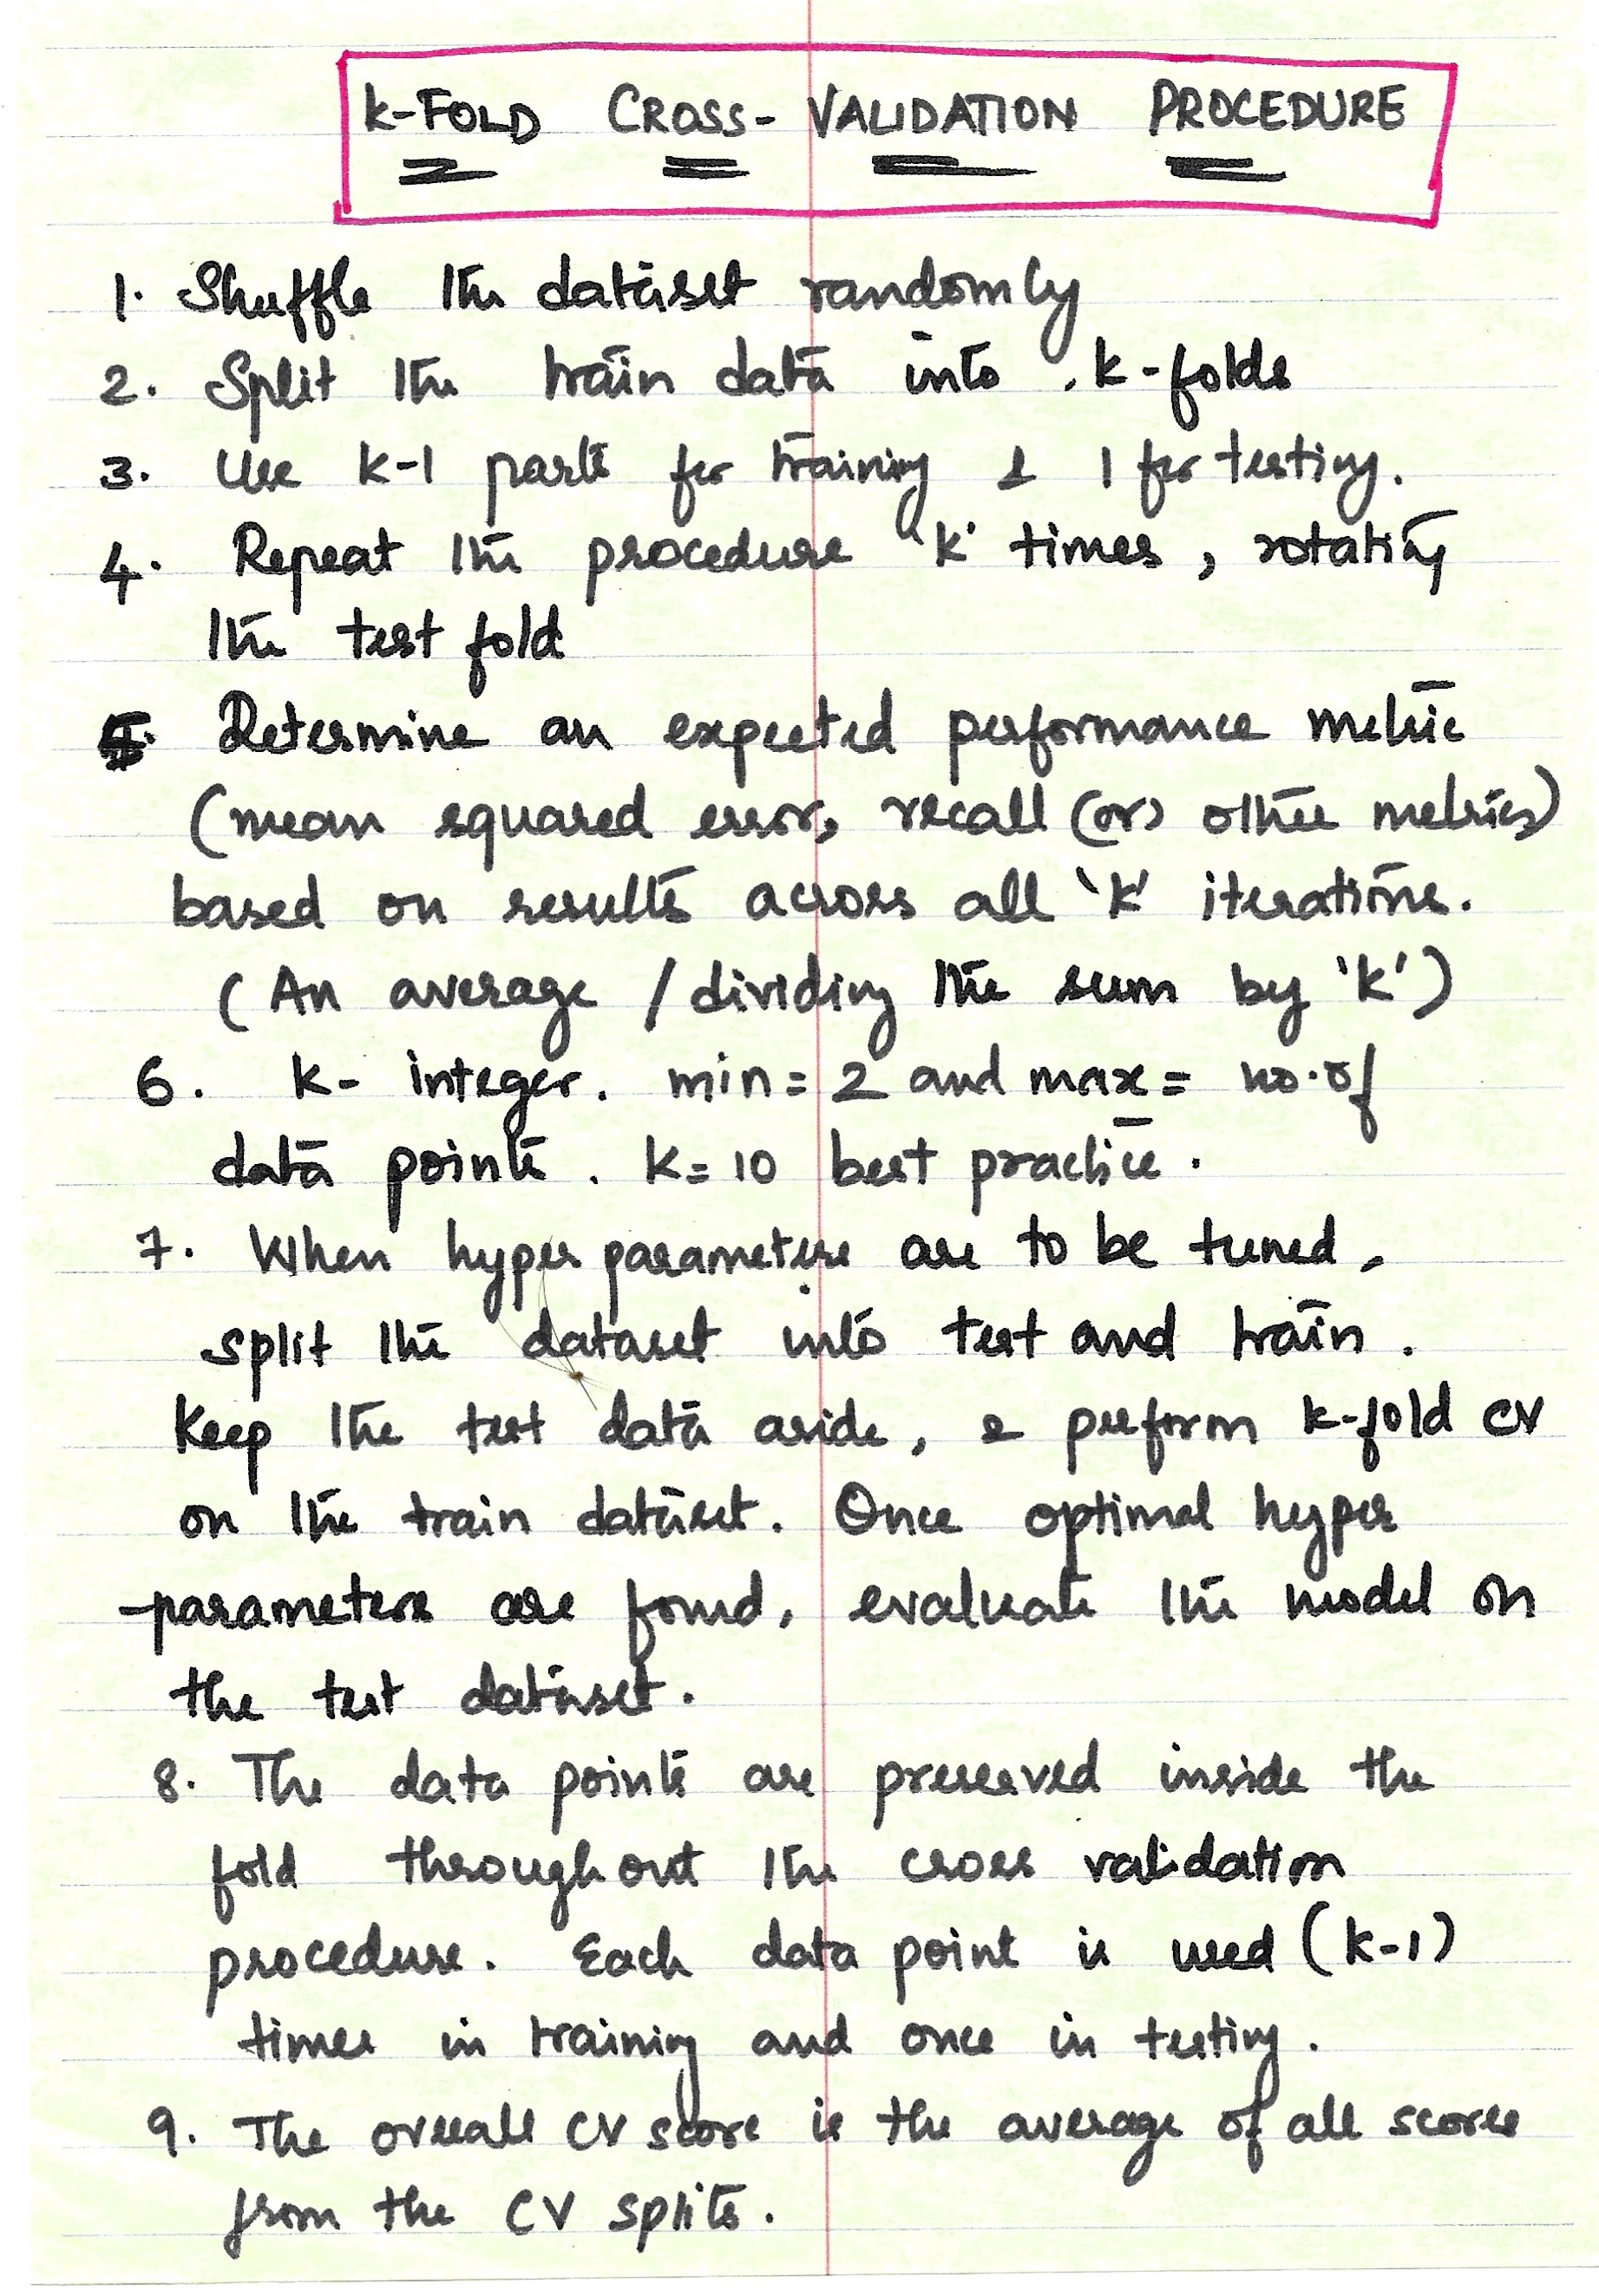 K-FOLD CROSS-VALIDATION PROCEDURE
1. Shuffle the dataset randomly
2. Split the train data into k-folds
3. Use k-1 parts for training & 1 for testing.
4. Repeat the procedure 'k' times, rotating
the test fold
5. Determine an expected performance metric
(mean squared error, recall (or) other metrics)
based on results across all 'k' iterations.
(An average / dividing the sum by 'k')
6. k- integer. min = 2 and max = no. of
data points. k = 10 best practice.
7. When hyper parameters are to be tuned,
split the dataset into test and train.
Keep the test data aside, & perform k-fold CV
on the train dataset. Once optimal hyper
-parameters are found, evaluate the model on
the test dataset.
8. The data points are preserved inside the
fold throughout the cross validation
procedure. Each data point is used (k-1)
times in training and once in testing.
9. The overall CV score is the average of all scores
from the CV splits.